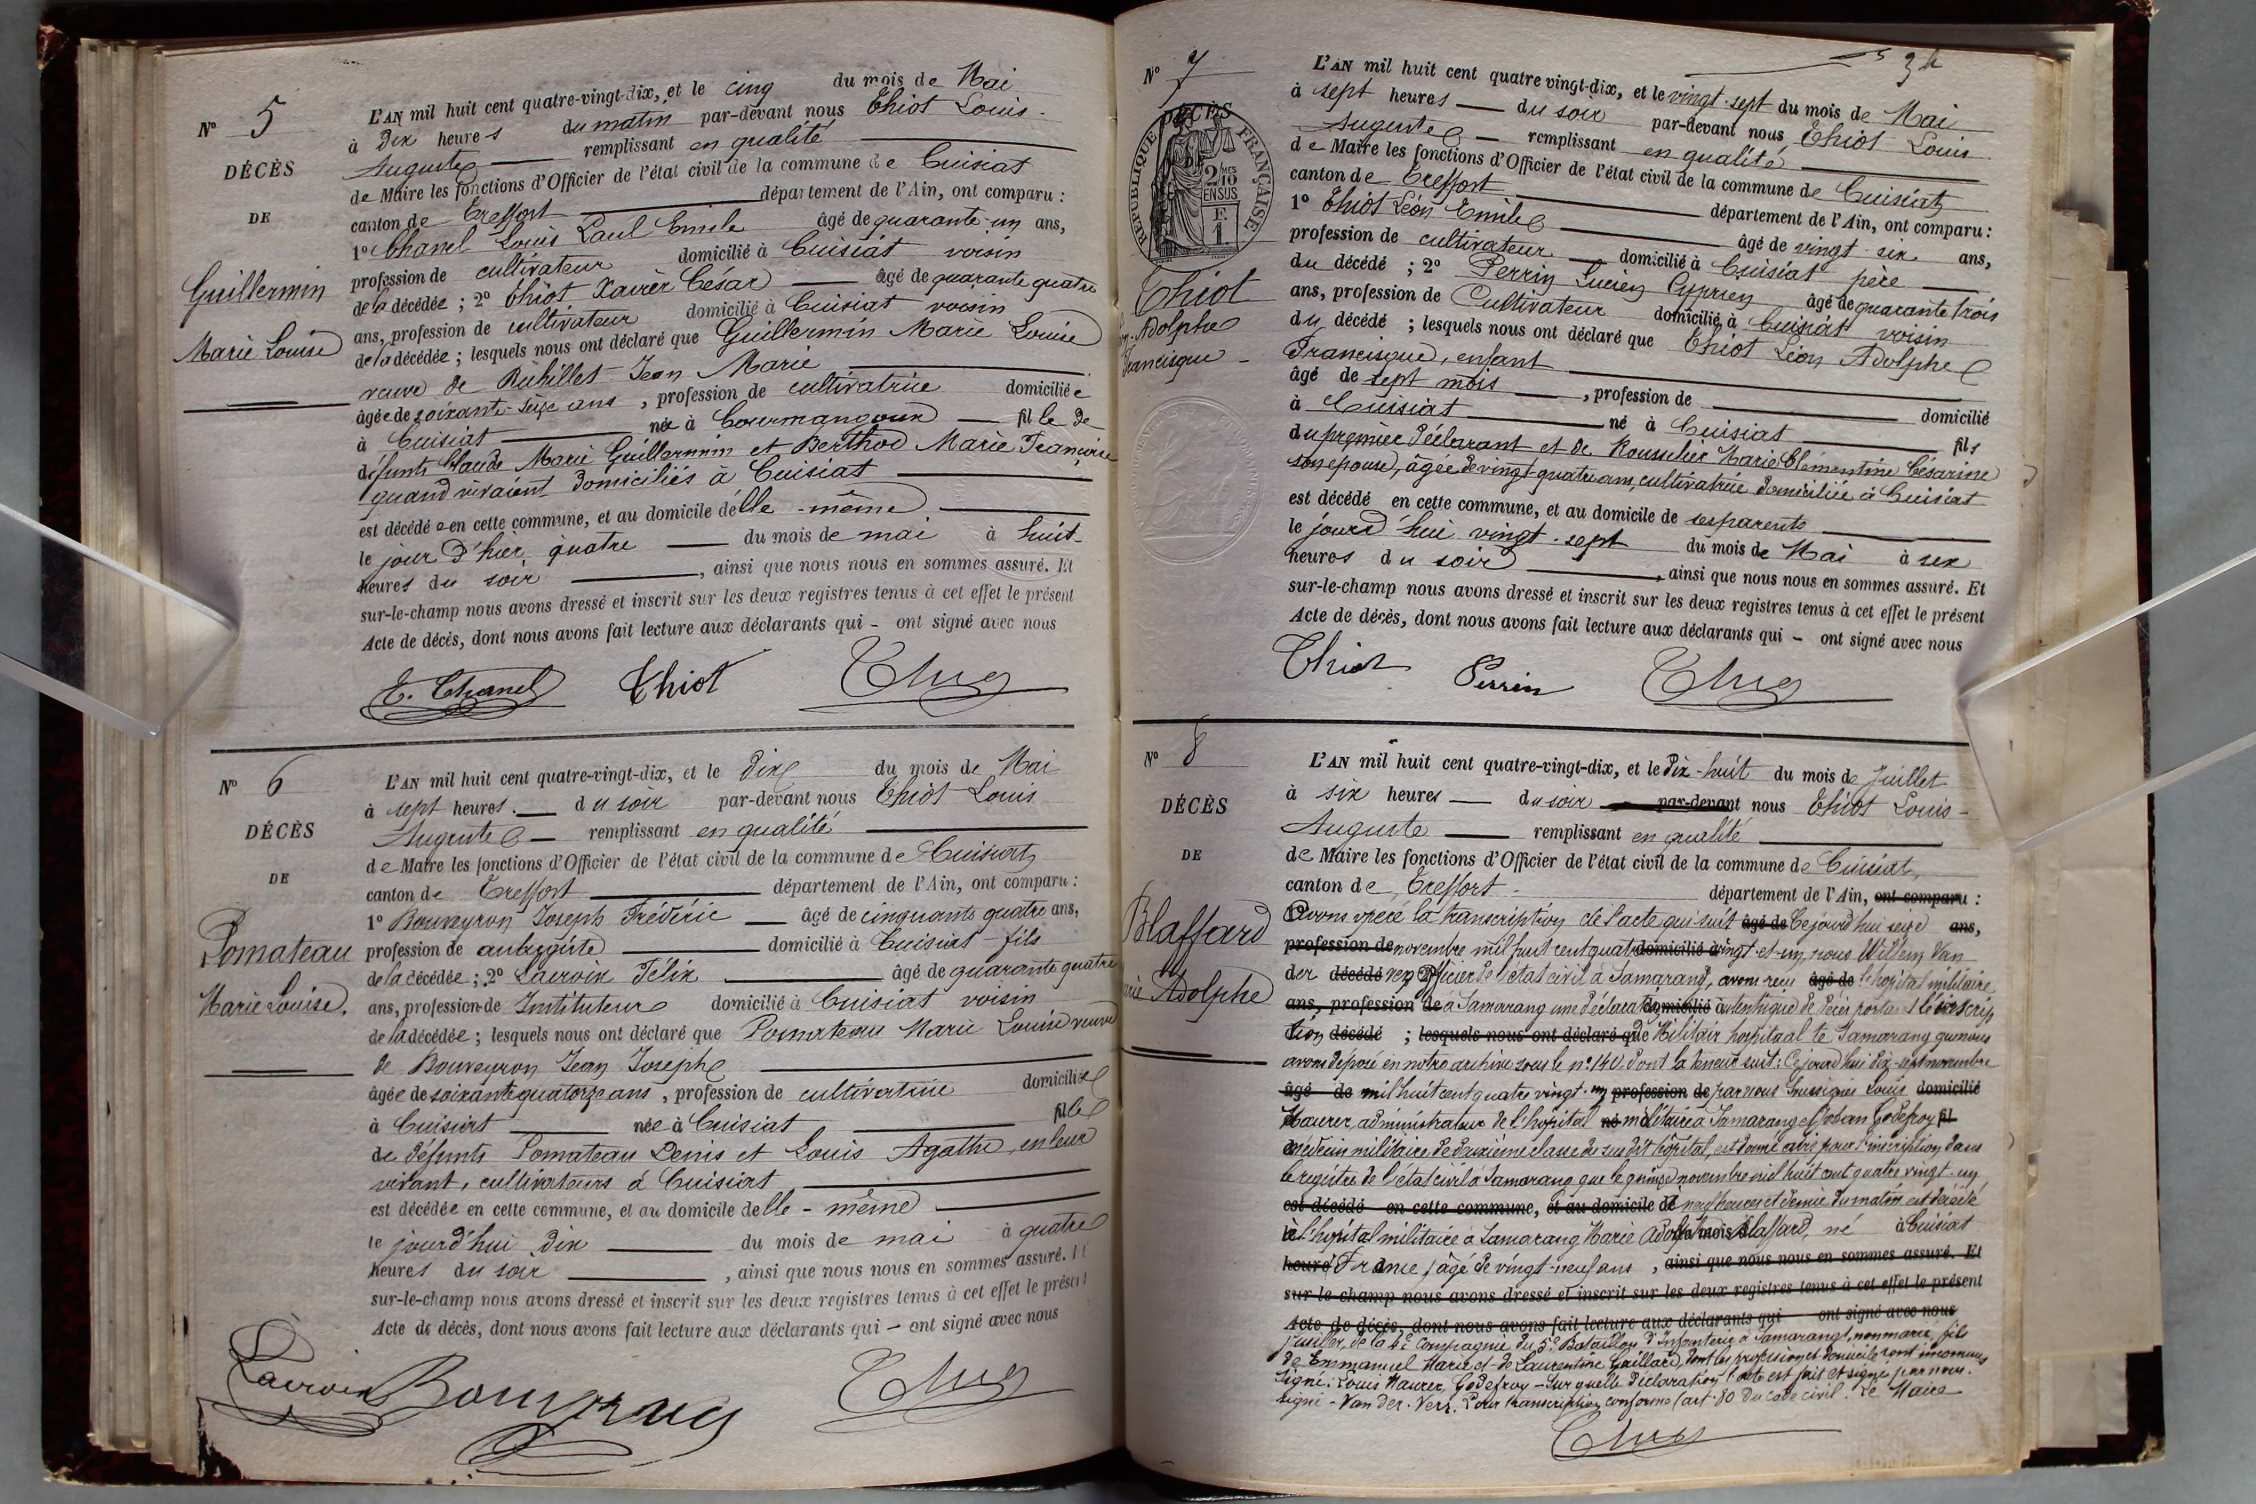 N° 5
DÉCÈS
DE
Guillermin
Marie Louise
L'AN mil huit cent quatre-vingt-dix, et le cinq du mois de Mai
à dix heures du matin par-devant nous Thiot Louis
Auguste remplissant en qualité
de Maire les fonctions d'Officier de l'état civil de la commune de Cuisiat
canton de Treffort département de l'Ain, ont comparu :
1° Chanel Louis Paul Emile âgé de quarante-un ans,
profession de cultivateur domicilié à Cuisiat voisin
de la décédée ; 2° Thiot Xavier César âgé de quarante quatre
ans, profession de cultivateur domicilié à Cuisiat voisin
de la décédée ; lesquels nous ont déclaré que Guillermin Marie Louise
veuve de Jean Marie
âgée de soixante-seize ans, profession de cultivatrice domiciliée
à Cuisiat née à Courmangoux fille de
défunts Claude Marie Guillermin et Berthod Marie Françoise
quand vivaient domiciliés à Cuisiat
est décédée en cette commune, et au domicile d'elle-même
le jour d'hier quatre du mois de mai à huit
heures du soir, ainsi que nous nous en sommes assuré. Et
sur-le-champ nous avons dressé et inscrit sur les deux registres tenus à cet effet le présent
Acte de décès, dont nous avons fait lecture aux déclarants qui - ont signé avec nous
E. Chanel Thiot
N° 6
DÉCÈS
DE
Pomateau
Marie Louise.
L'AN mil huit cent quatre-vingt-dix, et le dix du mois de Mai
à sept heures du soir par-devant nous Thiot Louis
Auguste remplissant en qualité
de Maire les fonctions d'Officier de l'état civil de la commune de Cuisiat
canton de Treffort département de l'Ain, ont comparu :
1° Bouveyron Joseph Frédéric âgé de cinquante quatre ans,
profession de aubergiste domicilié à Cuisiat fils
de la décédée ; 2° Lacroix Félix âgé de quarante quatre
ans, profession de Instituteur domicilié à Cuisiat voisin
de la décédée ; lesquels nous ont déclaré que Pomateau Marie Louise veuve
de Bouveyron Jean Joseph
âgée de soixante quatorze ans, profession de cultivatrice domiciliée
à Cuisiat née à Cuisiat fille
de défunts Pomateau Denis et Louis Agathe, en leur
vivant, cultivateurs à Cuisiat
est décédée en cette commune, et au domicile d'elle-même
le jourd'hui dix du mois de mai à quatre
heures du soir, ainsi que nous nous en sommes assuré. Et
sur-le-champ nous avons dressé et inscrit sur les deux registres tenus à cet effet le présent
Acte de décès, dont nous avons fait lecture aux déclarants qui - ont signé avec nous
Lacroix Bouveyron
N° 7
DÉCÈS
RÉPUBLIQUE FRANÇAISE
2/10mes
EN SUS
F.
1.
Thiot
Léon-Adolphe
Francisque
L'AN mil huit cent quatre vingt-dix, et le vingt-sept du mois de Mai
à sept heures du soir par-devant nous Thiot Louis
Auguste remplissant en qualité
de Maire les fonctions d'Officier de l'état civil de la commune de Cuisiat
canton de Treffort département de l'Ain, ont comparu :
1° Thiot Léon Emile âgé de vingt-six ans,
profession de cultivateur domicilié à Cuisiat père
du décédé ; 2° Perrin Lucien Cyprien âgé de quarante trois
ans, profession de Cultivateur domicilié à Cuisiat voisin
du décédé ; lesquels nous ont déclaré que Thiot Léon Adolphe
Francisque, enfant
âgé de sept mois, profession de domicilié
à Cuisiat né à Cuisiat fils
du premier déclarant et de Rousselier Marie Clémentine Césarine
son épouse, âgée de vingt quatre ans, cultivatrice domiciliée à Cuisiat
est décédé en cette commune, et au domicile de ses parents
le jourd'hui vingt-sept du mois de Mai à six
heures du soir, ainsi que nous nous en sommes assuré. Et
sur-le-champ nous avons dressé et inscrit sur les deux registres tenus à cet effet le présent
Acte de décès, dont nous avons fait lecture aux déclarants qui - ont signé avec nous
Thiot Perrin
N° 8
DÉCÈS
DE
Blaffard
Marie Adolphe
L'AN mil huit cent quatre-vingt-dix, et le Dix-huit du mois de Juillet
à six heures du soir par-devant nous Thiot Louis
Auguste remplissant en qualité
de Maire les fonctions d'Officier de l'état civil de la commune de Cuisiat,
canton de Treffort département de l'Ain, ont comparu :
Avons opéré la transcription de l'acte qui suit âgé de Cejourd'hui seize ans,
profession de novembre mil huit cent quatre domicilié à vingt-et-un, nous Willem Van
der décédé Vers Officier de l'état civil à Samarang, avons reçu âgé de l'hôpital militaire
ans, profession de à Samarang une déclaration domicilié authentique de décès portant l'inscrip
tion décédé ; lesquels nous ont déclaré que de Militair hospitaal te Samarang que nous
avons déposé en notre archive sous le n° 140 dont la teneur suit : Cejourd'hui dix-sept novembre
âgé de mil huit cent quatre vingt-un profession de par nous soussignés Louis domicilié
Maurer, administrateur de l'hôpital né militaire à Samarang et Godefroy fil
médecin militaire de deuxième classe du susdit hôpital, est donné avis pour l'inscription dans
le registre de l'état civil à Samarang que le quinze novembre mil huit cent quatre vingt-un
est décédé en cette commune, et au domicile de neuf heures et demie du matin est décédé
à l'hôpital militaire à Samarang Marie Adolphe du mois Blaffard, né à Cuisiat
heures France, âgé de vingt-neuf ans, ainsi que nous nous en sommes assuré. Et
sur-le-champ nous avons dressé et inscrit sur les deux registres tenus à cet effet le présent
Acte de décès, dont nous avons fait lecture aux déclarants qui ont signé avec nous
fusilier de la 4e Compagnie du 5e Bataillon d'Infanterie à Samarang, non marié, fils
de Emmanuel Marie et de Laurentine Gaillard, dont les profession et domicile sont inconnus
signé : Louis Maurer, Godefroy - Sur quelle déclaration l'acte est fait et signé par nous.
signé - Van der Vers. Pour transcription conforme (art. 80 du code civil. Le Maire